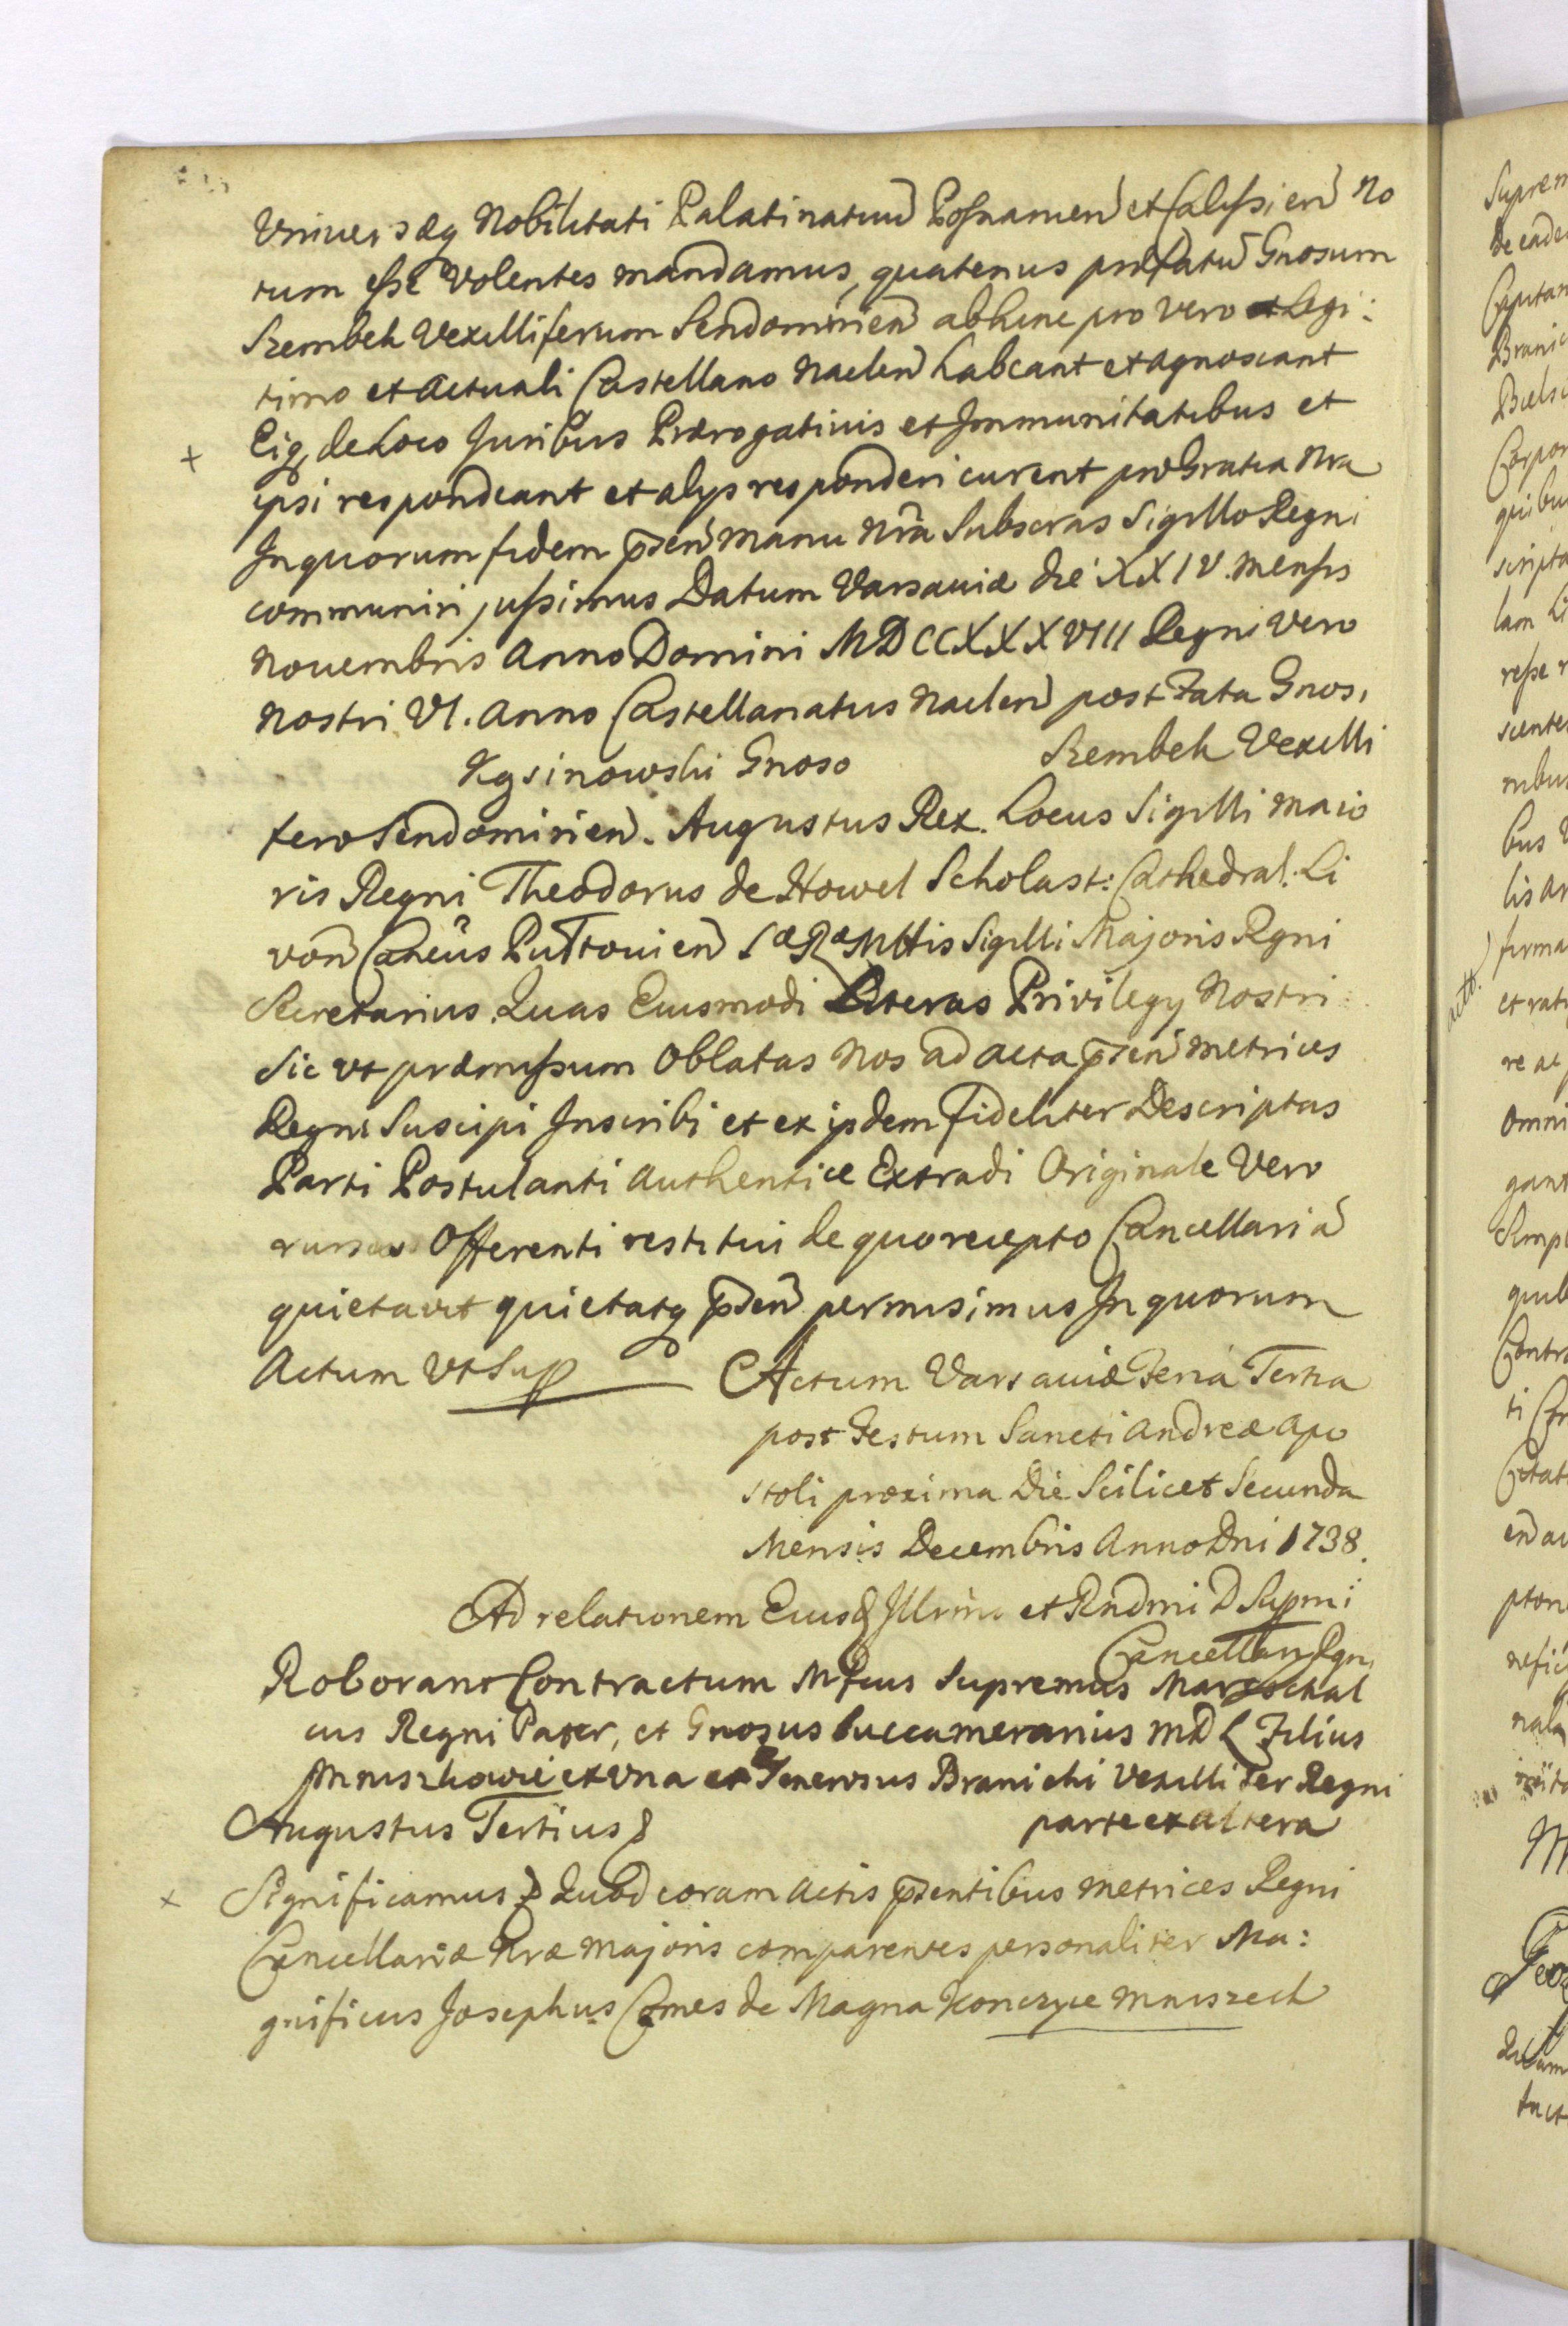 Universæq Nobilitati Palatinatuu Posnanien et Calissien No
tum esse Volentes mandamus, quatenus præfatu Gnosum
Szembek Vexilliferum Sendomirien abhinc pro vero et Legi:
timo et Actuali Castellano Naclen habeant et agnoscant
Eiq, de Loco Juribus Prærogativis et Immunitatibus et
ipsi respondeant et alys responderi curent pro Gratia Nra
In quorum fidem pñsen manu Nrã Subscras Sigillo Regni
communiri jussimus Datum Varsaviæ die XXIV. Mensis
Novembris Anno Domini MDCCXXXVIII Regni vero
Nostri VI. Anno Castellanatus Naclen post Fata Gnos.
Kgsinowski Gnoso Szembek Vexilli
fero Sendomirien. Augustus Rex. Locus Sigilli Maio
ris Regni Theodorus de Howel Scholast: Cathedral. Li
von Caneus Pultovien SæRæMttis Sigilli Majoris Regni
Secretarius. Quas Eiusmodi Literas Privilegy Nostri
Sic ut præmissum Oblatas Nos ad acta pñsen Metrices
Regni Suscipi Inscribi et ex ijsdem fideliter Descriptas
Parti Postulanti Authentice Extradi Originale Vero
rursus Offerenti restitui de quo recepto Cancellaria
quietavit quietatq pñsen permisimus In quorum
Actum Vt Sup Actum Varsaviæ Feria Tertia
post Festum Sancti Andreæ Apo
stoli proxima Die Scilicet Secunda
Mensis Decembris Anno Dni 1738.
Ad relationem Eiusd Illrmi et Rndmi D Supmi
Cancellary Rgni
Roborant Contractum Mfcus Supremus Marsschal
cus Regni Pater, et Gnosus Succamerarius MDL Filius
Mniszkowie ex Vna et Generosus Branicki Vexillifer Regni
Augustus Tertius & parte ex altera
Significamus & Quod coram Actis pñsentibus Metrices Regni
Cancellariæ Nræ Majoris comparentes personaliter Ma:
gnificus Josephus Comes de Magna Konczyce Mniszech